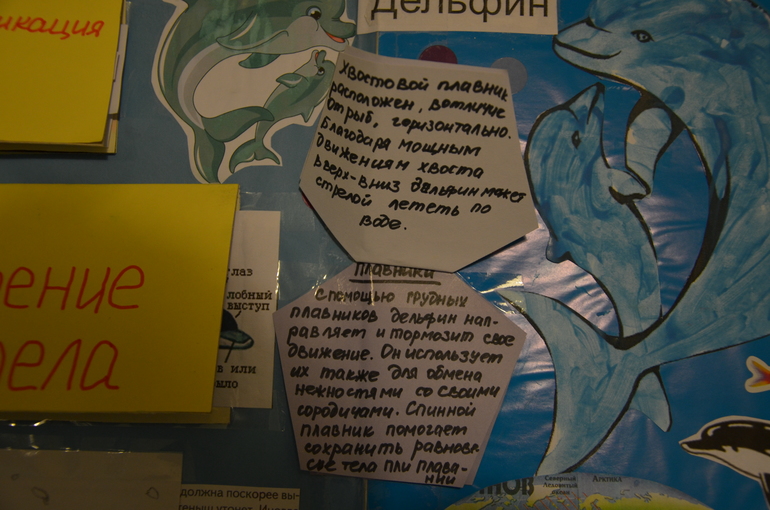 икация
дельфин
Хвостовой плавник
расположен, вотличие
от рыб, горизонтально.
Благодаря мощным
движениям хвоста
вверх-вниз дельфин может
стрелой лететь по
воде.
Плавники
С помощью грудных
плавников дельфин нап-
равляет и тормозит свое
движение. Он использует
их также для обмена
нежностями со своими
сородичами. Спинной
плавник помогает
сохранить равнове-
сие тела пли плава-
нии
ение
ела
глаз
лобный
выступ
в или
ыло
должна поскорее вы-
Северный
Ледовитый
океан
Арктика